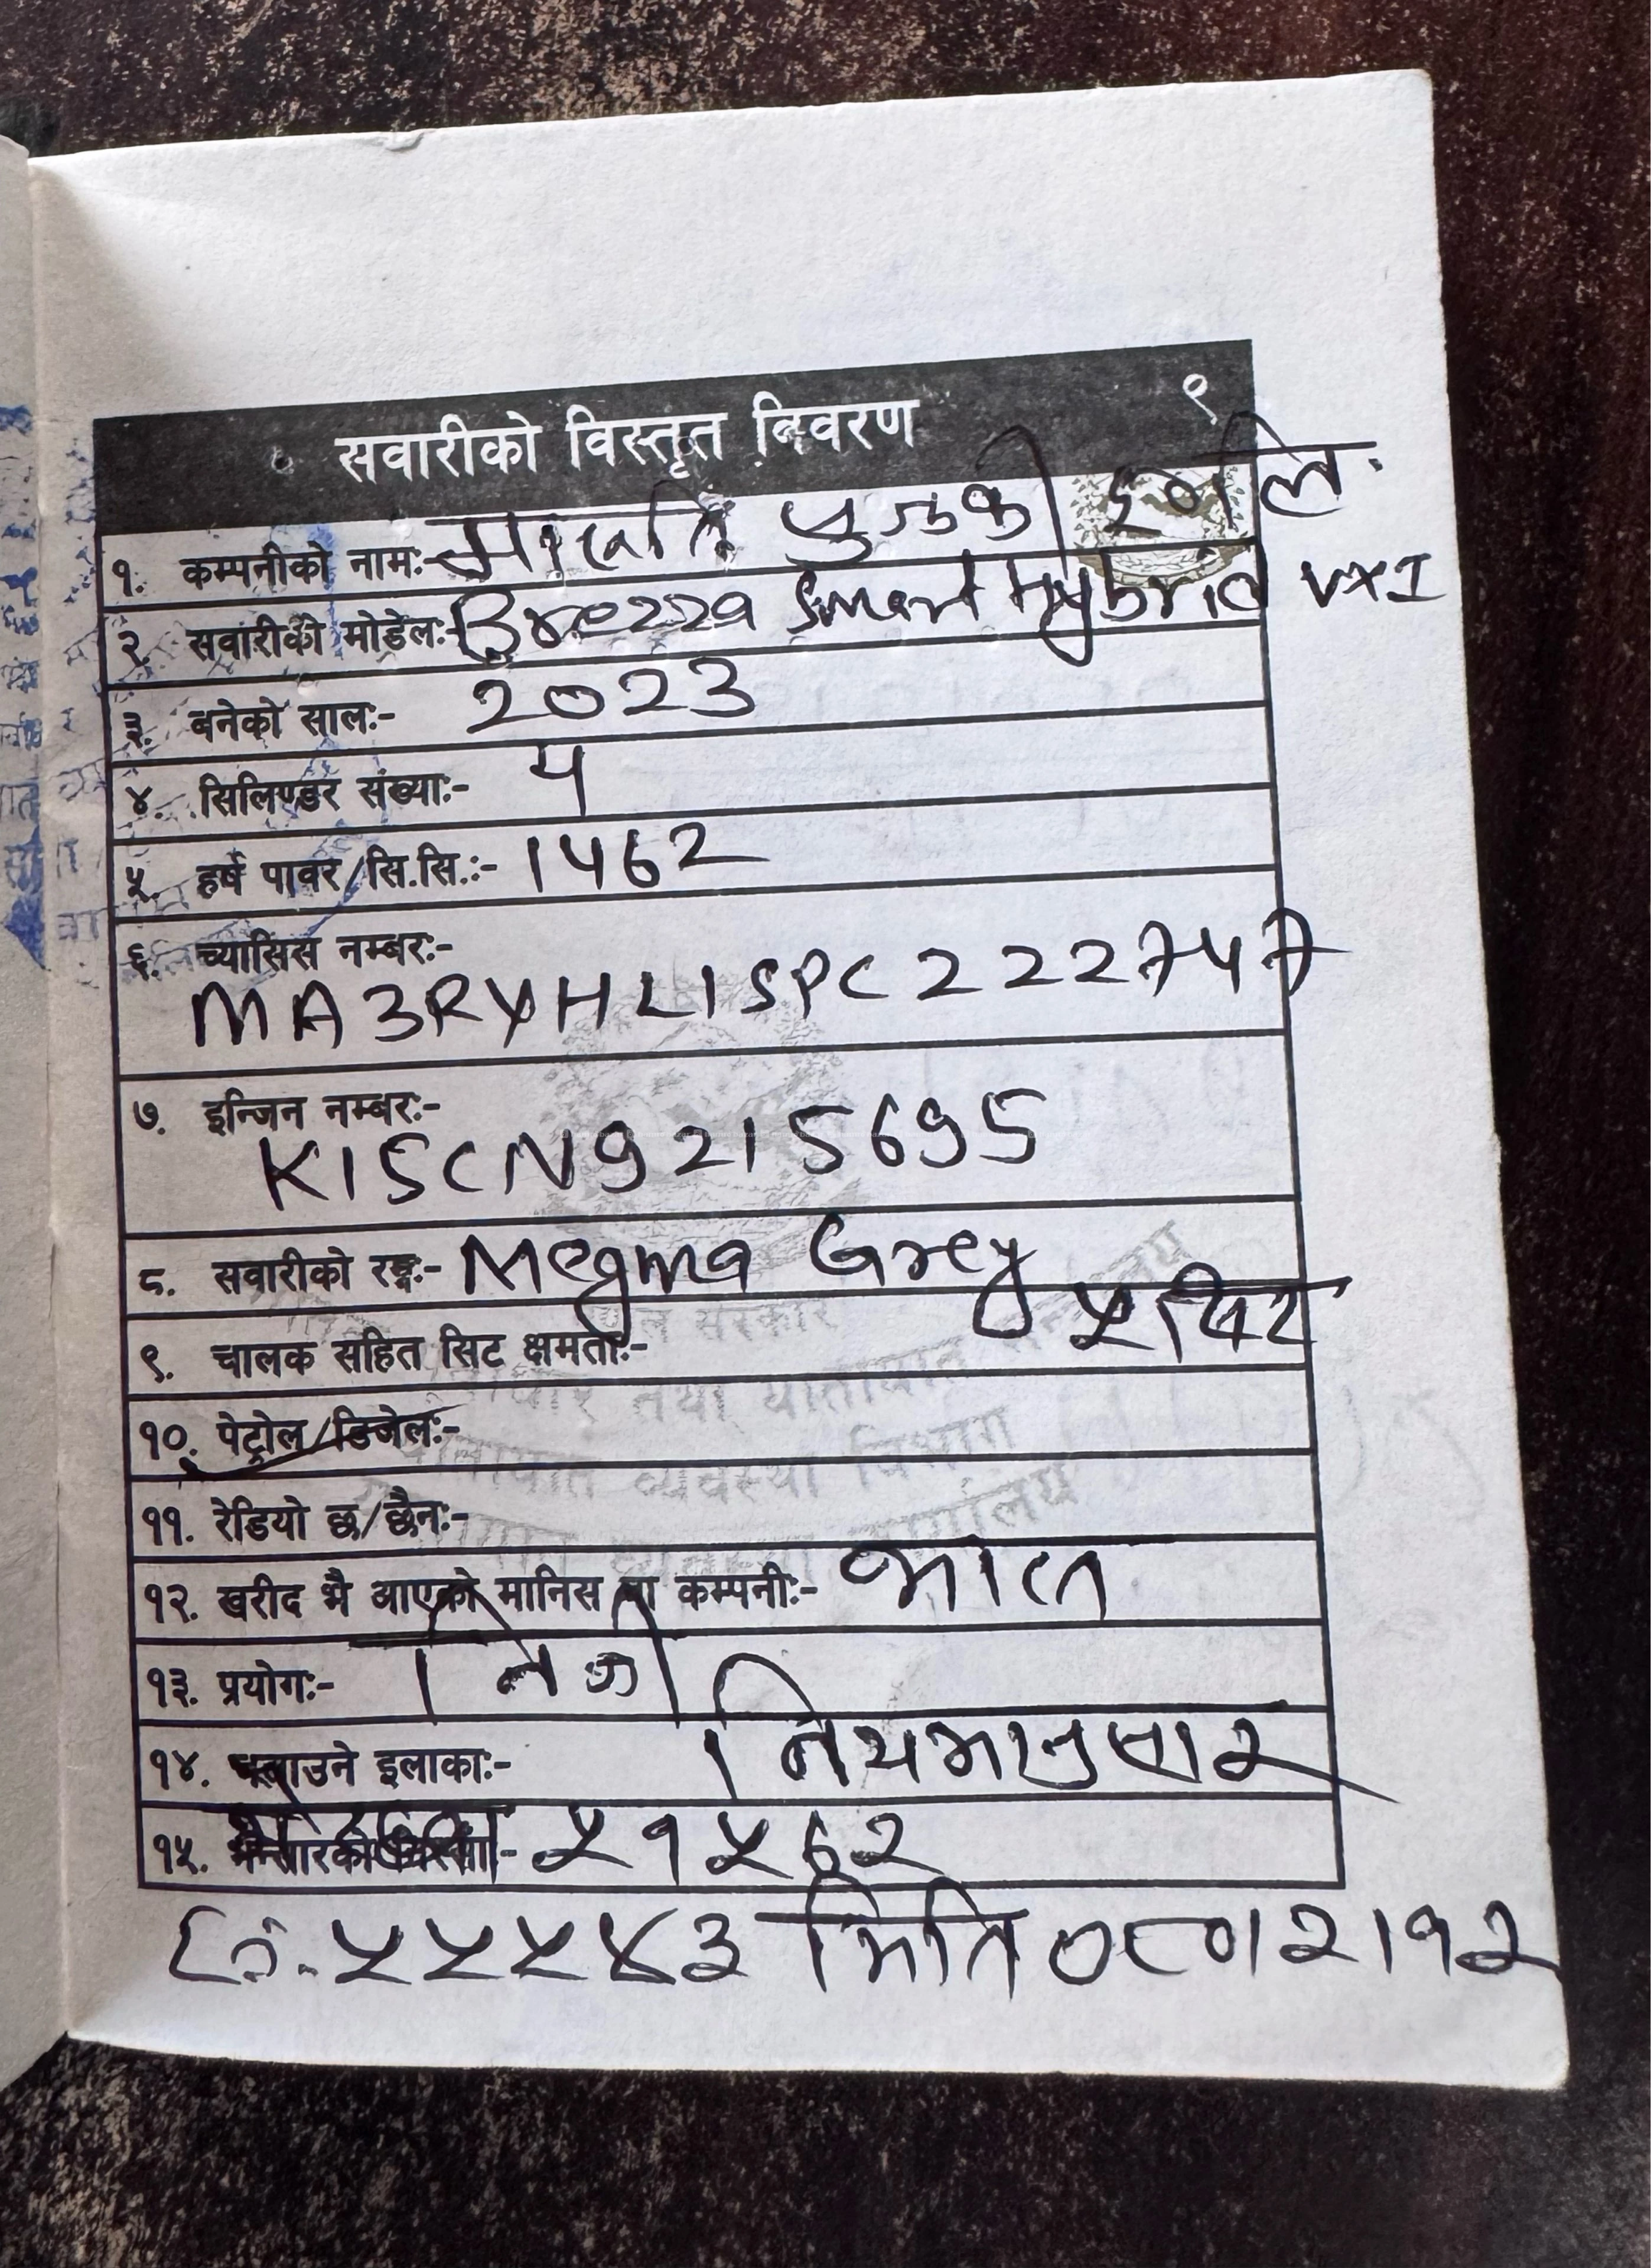 सवारीको विस्तृत विवरण ९
१. कम्पनीको नाम:- मारुति सुजुकी इ०लि.
२. सवारीको मोडेल:- Brezza Smart Hybrid VXI
३. बनेको साल:- 2023
४. सिलिण्डर संख्या:- 4
५. हर्ष पावर/सि.सि.:- 1462
६. च्यासिस नम्बर:-
MA3RYHL1SPC222747
७. इन्जिन नम्बर:-
K15CN9215695
८. सवारीको रङ्ग:- Megma Grey
९. चालक सहित सिट क्षमता:- ५ सिट
१०. पेट्रोल/डिजेल:-
११. रेडियो छ/छैन:-
१२. खरीद भै आएको मानिस वा कम्पनी:- भारत
१३. प्रयोग:- निजी
१४. चलाउने इलाका:- नियमानुसार
१५. ५१५६२
५५५४३ मिति ०८०।२।१२